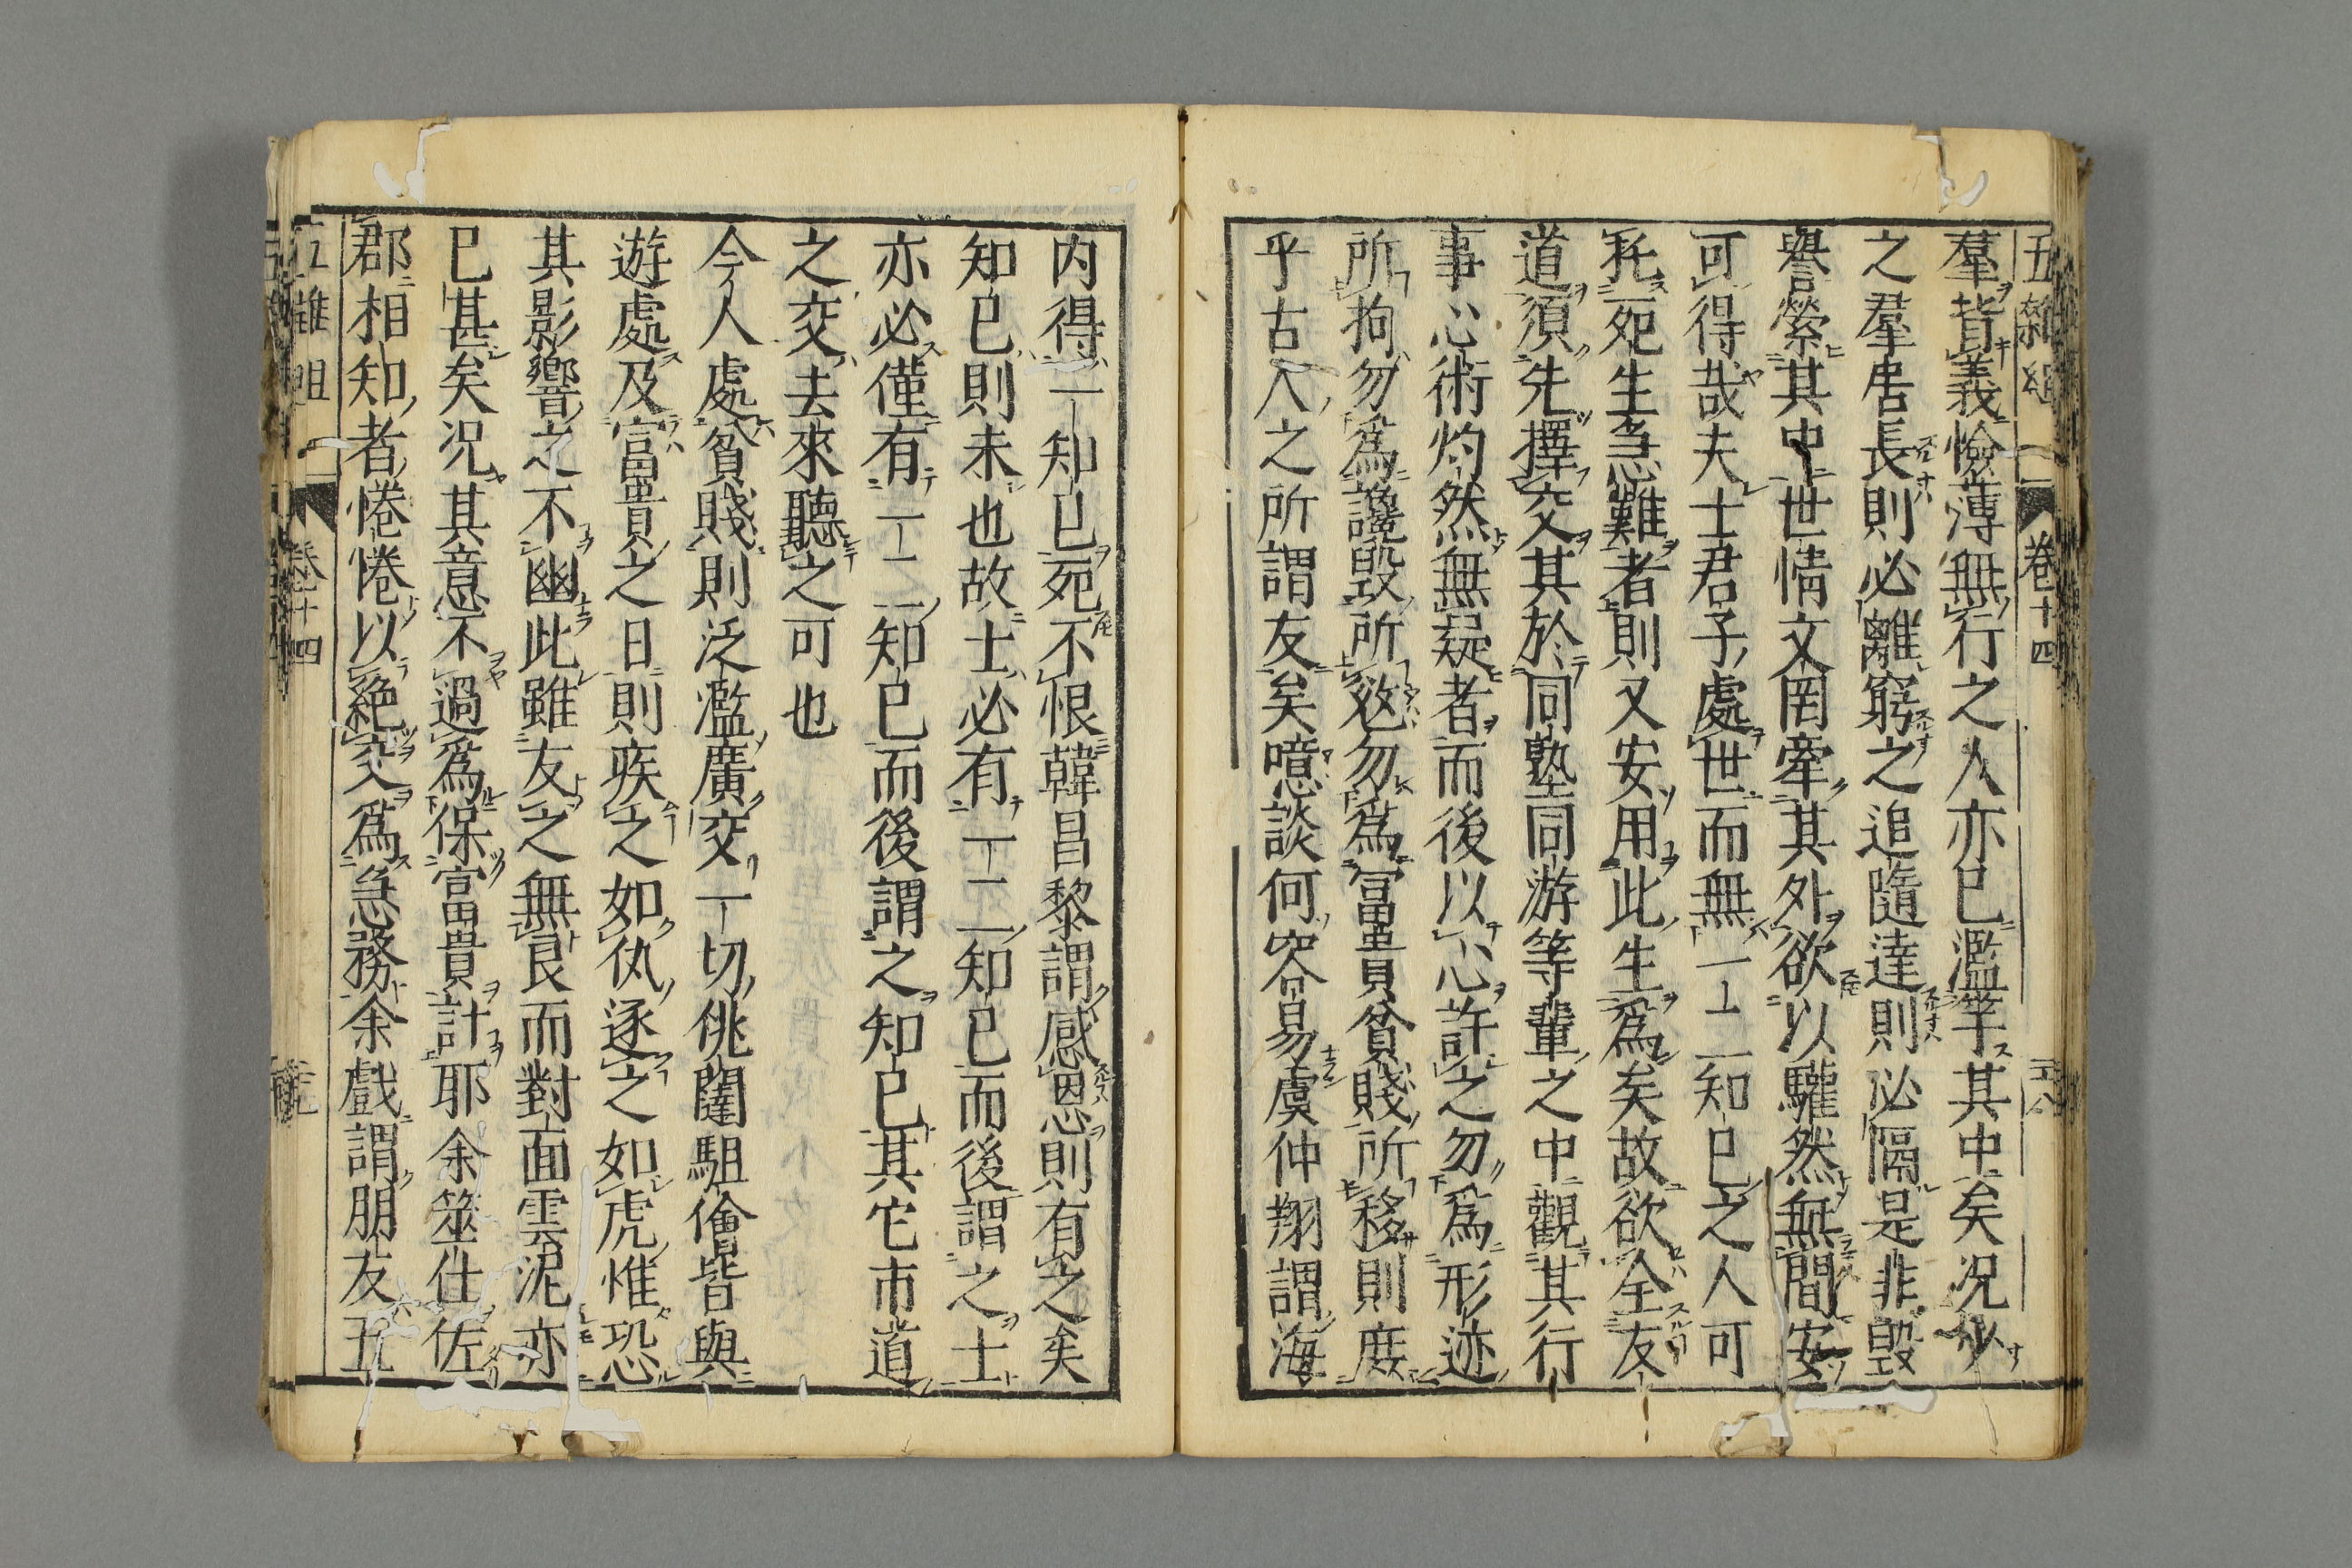 五雜組
卷十四
羣背義憸薄無行之人亦已濫竽其中矣况少
之羣居長則必離窮之追隨達則必隔是非毀
譽縈其中世情文罔牽其外欲以驩然無間安
可得哉夫士君子處世而無一知已之人可
託死生急難者則又安用此生爲矣故欲全友
道須先擇交其於同塾同游等輩之中觀其行
事心術灼然無疑者而後以心許之勿爲形迹
所拘勿爲讒毀所惑勿爲富貴貧賤所移則庶
乎古人之所謂友矣噫談何容易虞仲翔謂海
内得一知已死不恨韓昌黎謂感恩則有之矣
知已則未也故士必有一二知已而後謂之士
亦必僅有一二知已而後謂之知已其它市道
之交去來聽之可也
今人處貧賤則泛濫廣交一切佻闥駔儈皆與
遊處及富貴之日則疾之如仇逐之如虎惟恐
其影響之不幽此雖友之無良而對面雲泥亦
已甚矣况其意不過爲保富貴計耶余筮仕佐
郡相知者惓惓以絶交爲急務余戲謂朋友五
五雜俎
卷十四